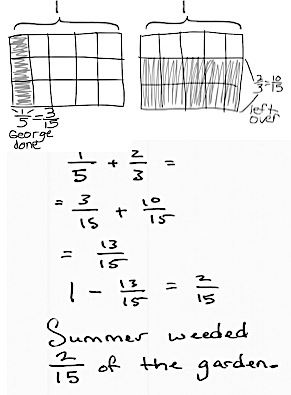 1 1
1/5 = 3/15
George
done
2/3 = 10/15
left
over
1/5 + 2/3 =
= 3/15 + 10/15
= 13/15
1 - 13/15 = 2/15
Summer weeded
2/15 of the garden.